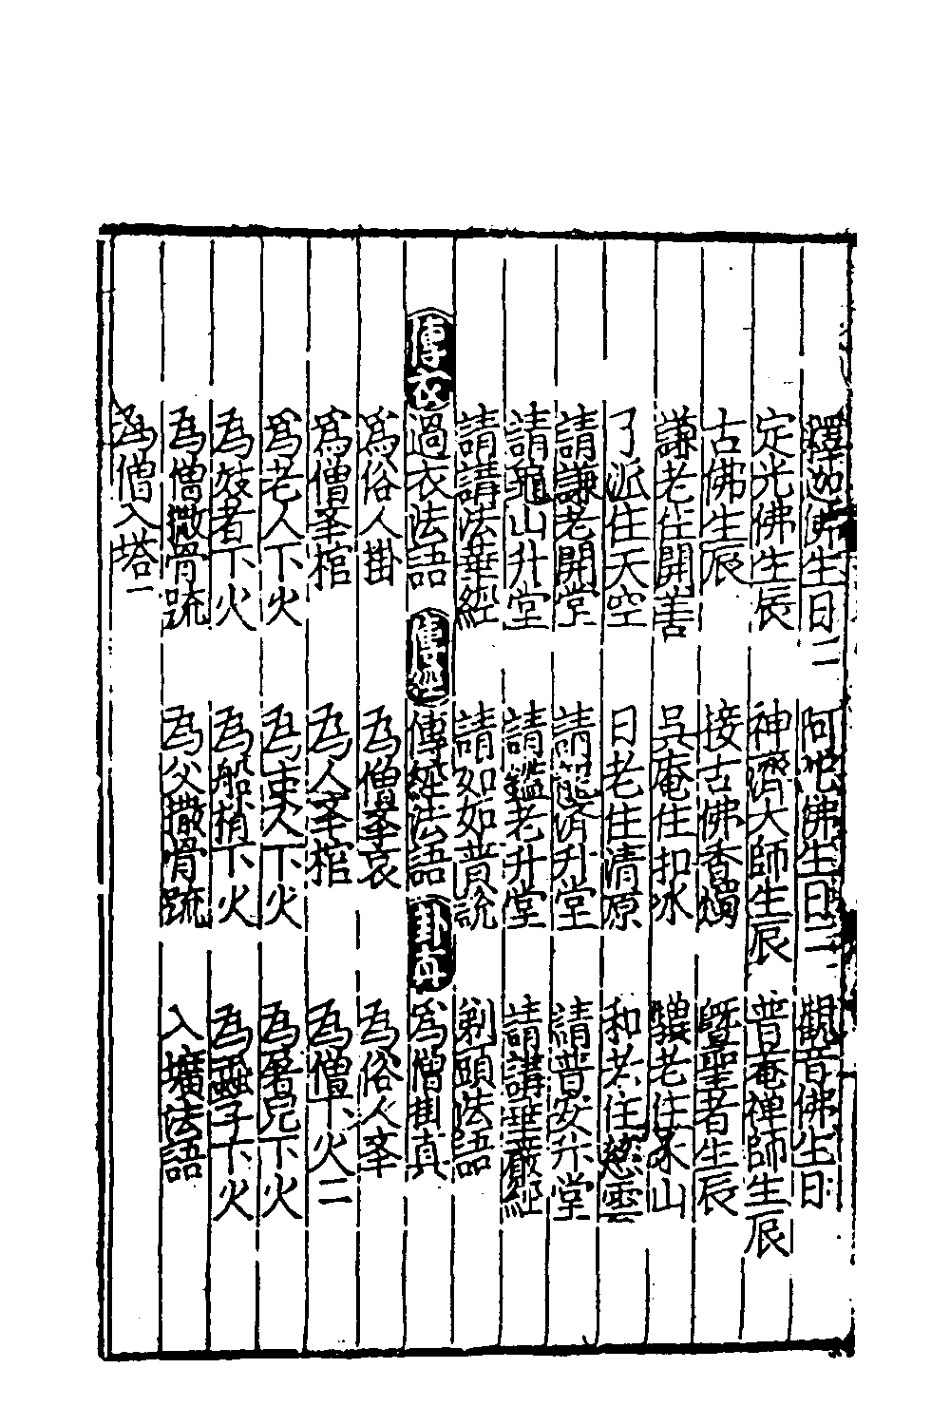 釋迦佛生日二　阿彌佛生日二　觀音佛生日
定光佛生辰　神濟大師生辰　普菴禅師生辰
古佛生辰　接古佛香燭　曁聖者生辰
謙老住開善　吳庵住扣冰　老住山
了派住天空　日老住清原　和老住慈雲
請謙老開堂　請濟升堂　請普安升堂
請龜山升堂　請鑑老升堂　請講華嚴經
請講法華經　請如如普說　剃頭法語
傳衣　過衣法語　傳經　傳經法語　掛真　爲僧掛真
爲俗人掛　為僧舉哀　為俗人舉
爲僧舉棺　为人舉棺　為僧下火二
爲老人下火　为吏人下火　為暑兒下火
為妓者下火　為船梢下火　為子下火
為僧撒骨䟽　為父撒骨䟽　入壙法語
為僧入塔一